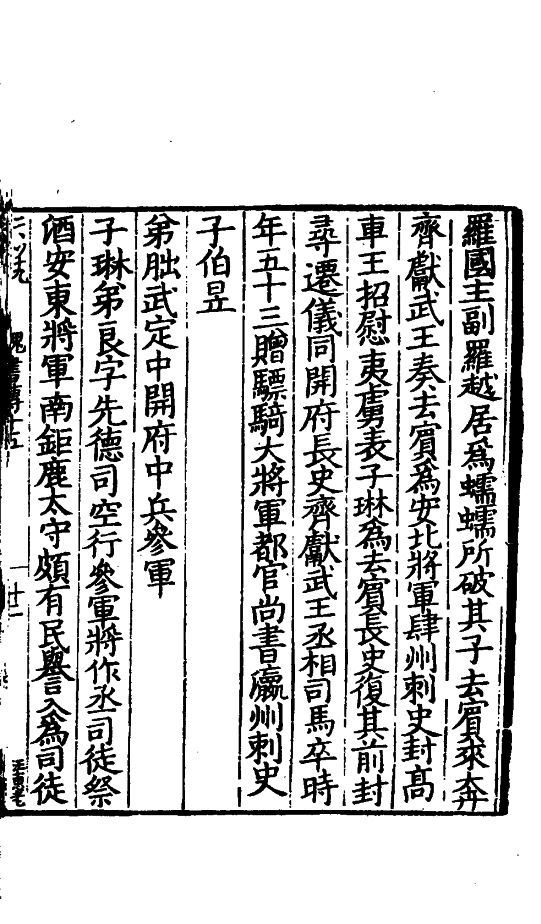 羅國主副羅越居爲蠕蠕所破其子去賓來奔
齊獻武王奏去賓爲安北將軍肆州刺史封高
車王招慰夷虜表子琳爲去賓長史復其前封
尋遷儀同開府長史齊獻武王丞相司馬卒時
年五十三贈驃騎大將軍都官尚書瀛州刺史
子伯昱
弟朏武定中開府中兵參軍
子琳弟良字先德司空行參軍將作丞司徒祭
酒安東將軍南鉅鹿太守頗有民譽入爲司徒
魏書傳十五
十二